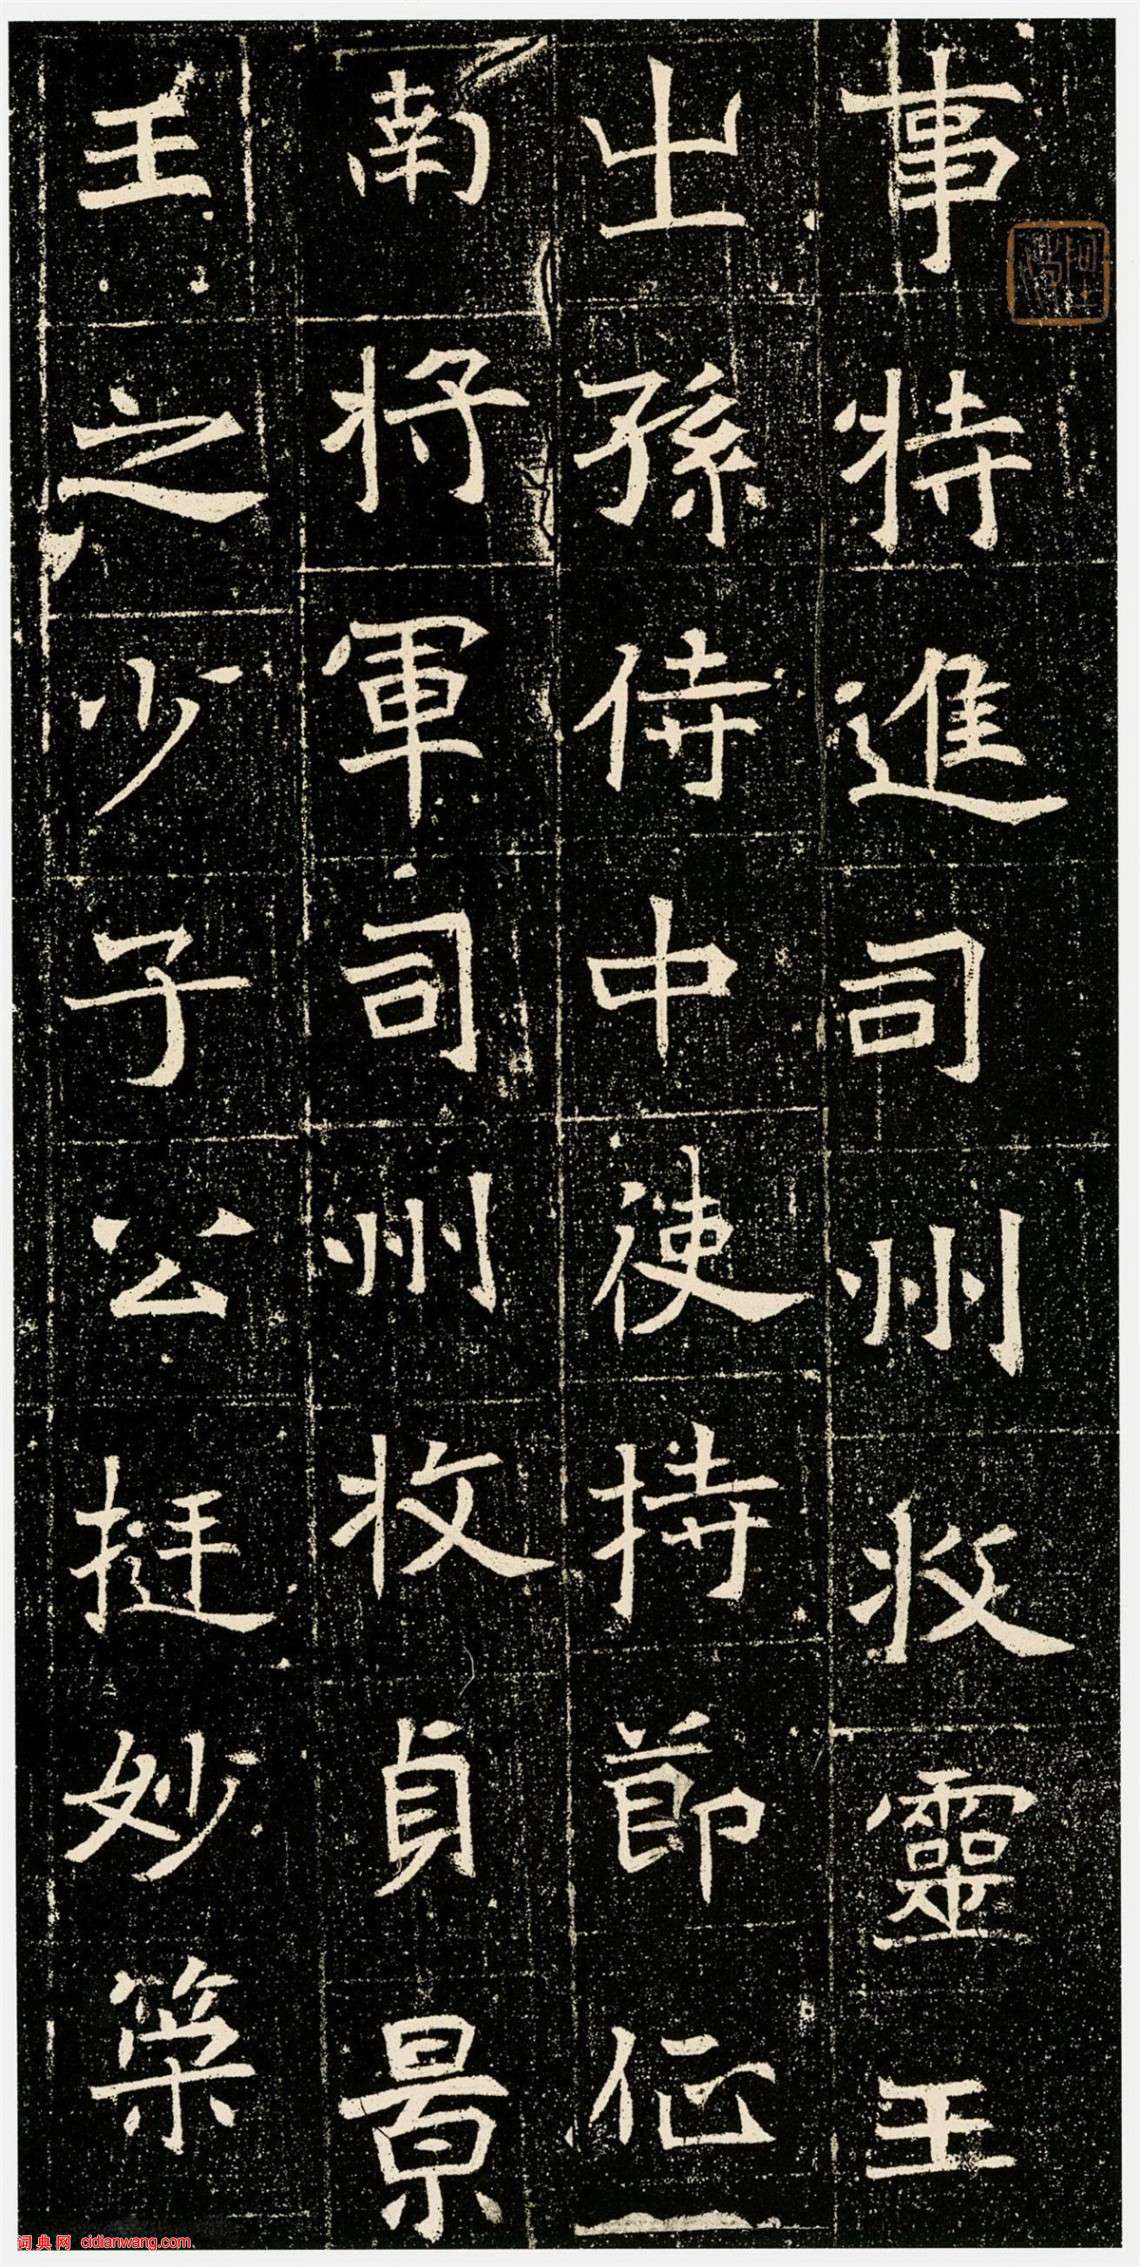 事特進司州牧靈王
㞢孫侍中使持節征
南將軍司州牧貞景
王之少子公挺妙䇿
词典网 cidianwang.com